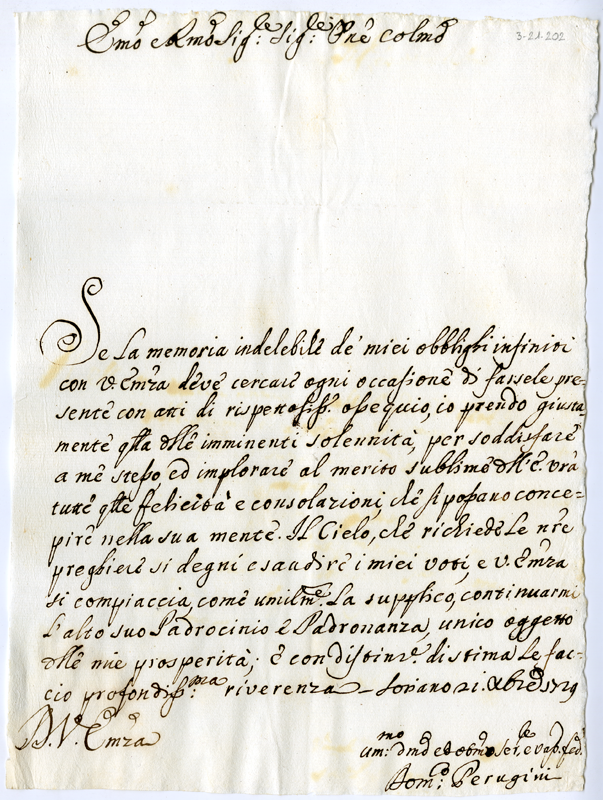 Emo e Rmo Sig:re Sig:re Pne Colmo
3-21.202
Se La memoria indelebile de' miei obblighi infiniti
con V. Emza deve cercare ogni occasione di farsele pre-
sente con atti di rispettosiss: ossequio, io prendo giusta
mente qlla dlle imminenti solennità, per soddisfare
a me stesso, ed implorare al merito sublime dll'E. Vra
tutte qlle felicità e consolazioni, che si possano conce-
pire nella sua mente. Il Cielo, che richiede Le nre
preghiere si degni esaudire i miei voti, e V. Emza
si compiaccia, come umilmte. La supplico, continuarmi
L'alto suo Padrocinio e Padronanza, unico oggetto
dlle mie prosperità; e con distinz.e di stima Le fac-
cio profondiss:ma riverenza Soriano 21. Xbre 1729
D. V. Emza
um:mo dmo ed obmo ser.e e vass. fed.
Dom:o Perugini